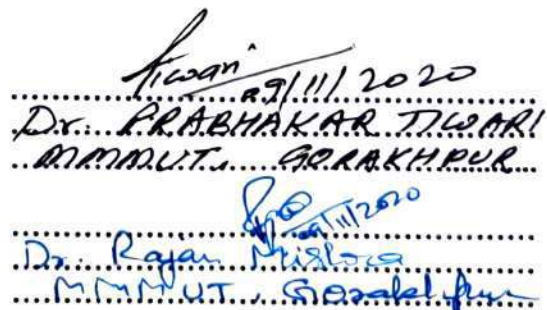 Tiwari
29/11/2020
Dr. PRABHAKAR TIWARI
MMMUT, GORAKHPUR
29/11/2020
Dr. Rajan Mishra
MMMUT, Gorakhpur